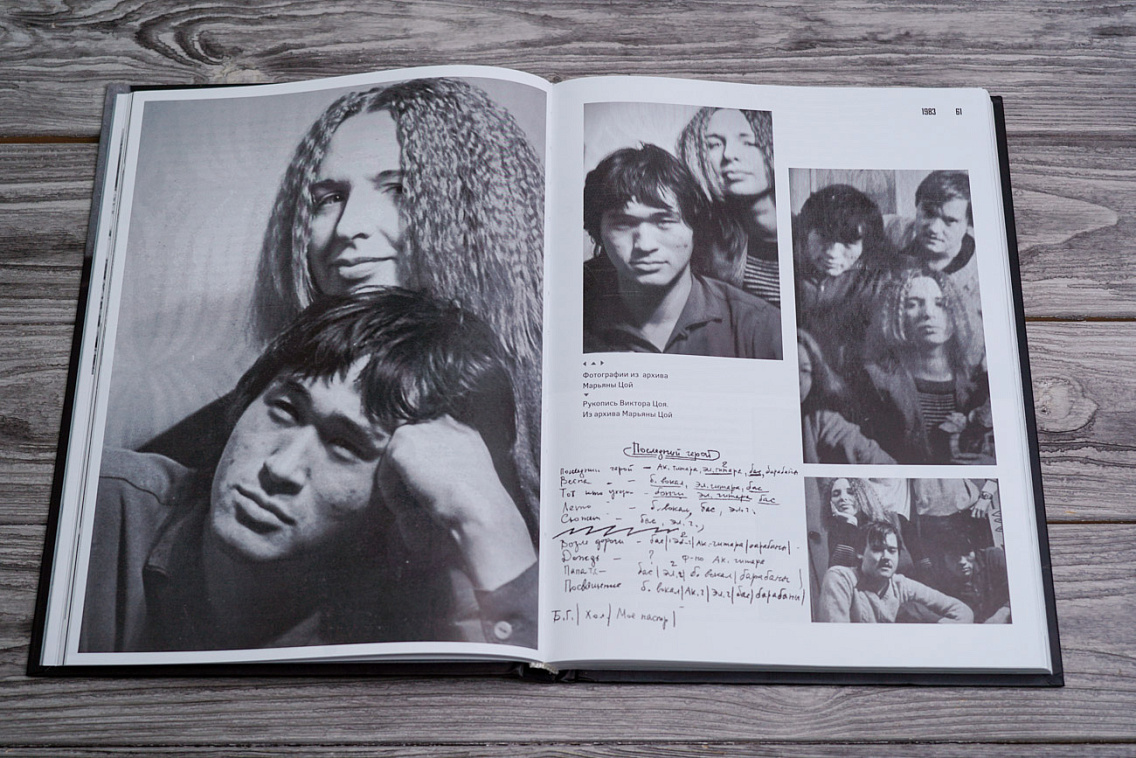 1983 61
Фотографии из архива
Марьяны Цой
Рукопись Виктора Цоя.
Из архива Марьяны Цой
Последний герой
Последний герой – Ак. гитара, эл. гитара, бас, барабаны
Весна – б. вокал, эл. гитара, бас
Тот – эл. гитара бас
Лето – б. вокал, бас, эл. г.
Сюжет – бас, эл. г.,
Возле дороги – бас | эл. г | Ак. гитара | барабаны
Дождь – ? ф-но Ак. гитара
– бас | эл. г | б. вокал | барабаны
Посвящение б. вокал | Ак. г | Эл. г | бас | барабаны
Б.Г. | Хол | Мое настр |